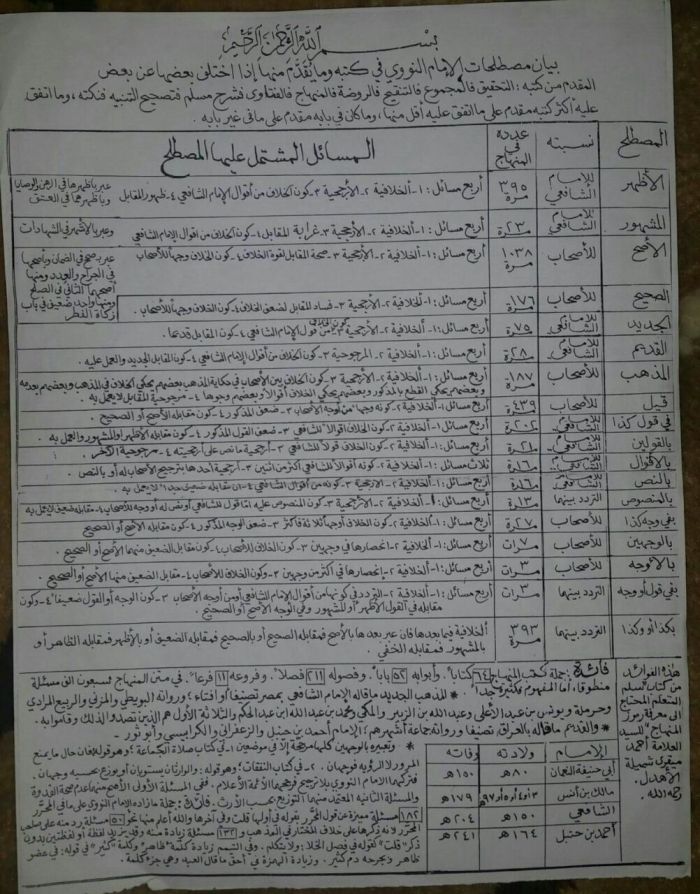 بسم الله الرحمن الرحيم
بيان مصطلحات الإمام النووي في كتبه وما يقدم منها إذا اختلف بعضها عن بعض
المقدم من كتبه: التحقيق فالمجموع فالتنقيح فالروضة فالمنهاج فالفتاوى فشرح مسلم فتصحيح التنبيه فنكته، وما اتفق
عليه أكثر كتبه مقدم على ما اتفق عليه أقل منها، وما كان في بابه مقدم على ما في غير بابه.
المصطلح نسبته عدده في المنهاج المسائل المشتمل عليها المصطلح
الأظهر للإمام الشافعي ٣٩٥ مرة أربع مسائل: ١- الخلافية ٢- الأرجحية ٣- كون الخلاف من أقوال الإمام الشافعي ٤- ظهور المقابل
عبر بأظهرها في الرهن والوصايا وبأظهرهما في العتق
المشهور للإمام الشافعي ٢٣ مرة أربع مسائل: ١- الخلافية ٢- الأرجحية ٣- غرابة المقابل ٤- كون الخلاف من أقوال الإمام الشافعي
وعبر بالأشهر في الشهادات
الأصح للأصحاب ١٠٣٨ مرة أربع مسائل: ١- الخلافية ٢- الأرجحية ٣- صحة المقابل لقوة الخلاف ٤- كون الخلاف وجها للأصحاب
عبر بصح في الضمان وبأصحها
في الجراح والعدد ومنها
أصحهما الثاني في الصلح
ومنها واحد ضعيف في باب
زكاة الفطر
الصحيح للأصحاب ١٧٦ مرة أربع مسائل: ١- الخلافية ٢- الأرجحية ٣- فساد المقابل لضعف الخلاف ٤- كون الخلاف وجها للأصحاب.
الجديد للإمام الشافعي ٧٥ مرة أربع مسائل: ١- الخلافية ٢- الأرجحية ٣- كون الخلاف من قول الإمام الشافعي ٤- كون المقابل قديما.
القديم للإمام الشافعي ٢٨ مرة أربع مسائل: ١- الخلافية ٢- المرجوحية ٣- كون الخلاف من أقوال الإمام الشافعي ٤- كون المقابل الجديد والعمل عليه.
المذهب للأصحاب ١٨٧ مرة أربع مسائل: ١- الخلافية ٢- الأرجحية ٣- كون الخلاف بين الأصحاب في حكاية المذهب بعضهم يحكي الخلاف في المذهب وبعضهم بعدمه
وبعضهم يحكي القطع بالمذكور وبعضهم يحكي الخلاف أقوالا وبعضهم وجوها ٤- مرجوحية المقابل لا يعمل به.
قيل للأصحاب ٤٣٩ مرة أربع مسائل: ١- الخلافية ٢- كونه وجها من أوجه الأصحاب ٣- ضعف المذكور ٤- كون مقابله الأصح أو الصحيح.
في قول كذا للإمام الشافعي ٢٠٤ مرة أربع مسائل: ١- الخلافية ٢- كون الخلاف أقوالا للشافعي ٣- ضعف القول المذكور ٤- كون مقابله الأظهر أو المشهور والعمل به
بالقولين للإمام الشافعي ٢٤ مرة أربع مسائل: ١- الخلافية ٢- كون الخلاف قولا للشافعي ٣- أرجحية ما نص على أرجحيته ٤- مرجوحية الآخر.
بالأقوال للإمام الشافعي ١٦ مرة ثلاث مسائل: ١- الخلافية ٢- كونه أقوالا للشافعي أكثر من اثنين ٣- أرجحية أحدها بترجيح الأصحاب له أو بالنص.
بالنص للإمام الشافعي ١٦ مرة أربع مسائل: ١- الخلافية ٢- الأرجحية ٣- كونه من أقوال الإمام الشافعي ٤- أن مقابله ضعيف جدا لا يعمل به.
بالمنصوص التردد بينهما ١٣ مرة أربع مسائل: ١- الخلافية ٢- الأرجحية ٣- كون المنصوص عليه إما قول للشافعي أو نص له أو وجه للأصحاب ٤- مقابله ضعيف لا يعمل به
بفي وجه كذا للأصحاب ٢٧ مرة أربع مسائل: ١- الخلافية ٢- كون الخلاف أوجها ثلاثة فأكثر ٣- ضعف الوجه المذكور ٤- كون مقابله الأصح أو الصحيح
بالوجهين للأصحاب ٧ مرات أربع مسائل: ١- الخلافية ٢- انحصارها في وجهين ٣- كون الخلاف للأصحاب ٤- كون المقابل الضعيف منهما الأصح أو الصحيح.
بالأوجه للأصحاب ٣ مرات أربع مسائل: ١- الخلافية ٢- انحصارها في أكثر من وجهين ٣- وكون الخلاف للأصحاب ٤- مقابل الضعيف منها الأصح أو الصحيح.
بفي قول أو وجه التردد بينهما ٣ مرات أربع مسائل: ١- الخلافية ٢- التردد في كونها من أقوال الإمام الشافعي أو من أوجه الأصحاب ٣- كون الوجه أو القول ضعيفا ٤- وكون
مقابله في القول الأظهر أو المشهور وفي الوجه الأصح أو الصحيح.
بكذا أو وكذا التردد بينهما ٣٩٣ مرة الخلافية فيما بعدها فإن عبر بعدها بالأصح فمقابله الصحيح أو بالصحيح فمقابله الضعيف أو بالأظهر فمقابله الظاهر أو
بالمشهور فمقابله الخفي.
هذه الفوائد
من كتاب سلم
المتعلم المحتاج
إلى معرفة رموز
المنهاج للسيد
العلامة أحمد
ميقري شميلة
الأهدل.
رحمه الله.
فائدة: جملة كتب المنهاج ٦٤ كتابا. وأبوابه ٥٢ بابا. وفصوله ٢١١ فصلا. وفروعه ١١ فرعا. في متن المنهاج سبعون ألف مسئلة
منطوقا، أما المفهوم فكثيرة جدا. * المذهب الجديد ما قاله الإمام الشافعي بمصر تصنيفا أو افتاء؛ ورواته البويطي والمزني والربيع المرادي
وحرملة ويونس بن عبد الأعلى وعبد الله بن الزبير والمكي ومحمد بن عبد الله ابن عبد الحكم والثلاثة الأول هم الذين تصدوا لذلك وقاموا به.
* والقديم ما قاله بالعراق تصنيفا ورواته جماعة أشهرهم: الإمام أحمد بن حنبل والزعفراني والكرابيسي وأبو ثور.
الإمام ولادته وفاته
أبي حنيفة النعمان ٨٠ هـ ١٥٠ هـ
مالك بن أنس ٣ أو ٤ أو ٥ أو ٩٧ هـ ١٧٩ هـ
الشافعي ١٥٠ هـ ٢٠٤ هـ
أحمد بن حنبل ١٦٤ هـ ٢٤١ هـ
* وتعبيره بالوجهين كلها مرجحة إلا في موضعين ١- في كتاب صلاة الجماعة؛ وهو قوله: فإن حال ما يمنع
المرور لا الرؤية فوجهان. ٢- في كتاب النفقات؛ وهو قوله: والوارثان يستويان أو يوزع بحسبه وجهان.
فتركهما الإمام النووي بلا ترجيح فرجحهما الأئمة الأعلام. ففي المسئلة الأولى الأصح منهما عدم صحة القدوة
والمسئلة الثانية المعتمد منهما التوزيع بحسب الإرث. فائدة: جملة ما زاده الإمام النووي على ما في المحرر
١٨٢ مسئلة مميزة عن قول المحرر بقوله في أولها قلت وفي آخرها والله أعلم منها نحو ٥٠ مسئلة رد منه على صاحب
المحرر لأنه ذكرها على خلاف المختار في المذهب و ١٣٢ مسئلة زيادة منه وقد يزيد لفظة أو لفظتين بدون
ذكر "قلت" كقوله في فصل الخلاء: ولا يتكلم. وفي التيمم زيادة كلمة "ظاهر" وكلمة "كثير" في قوله: في عضو
ظاهر وبجرحه دم كثير. وزيادة الهمزة في أحق ما قال العبد وهي جزء كلمة.